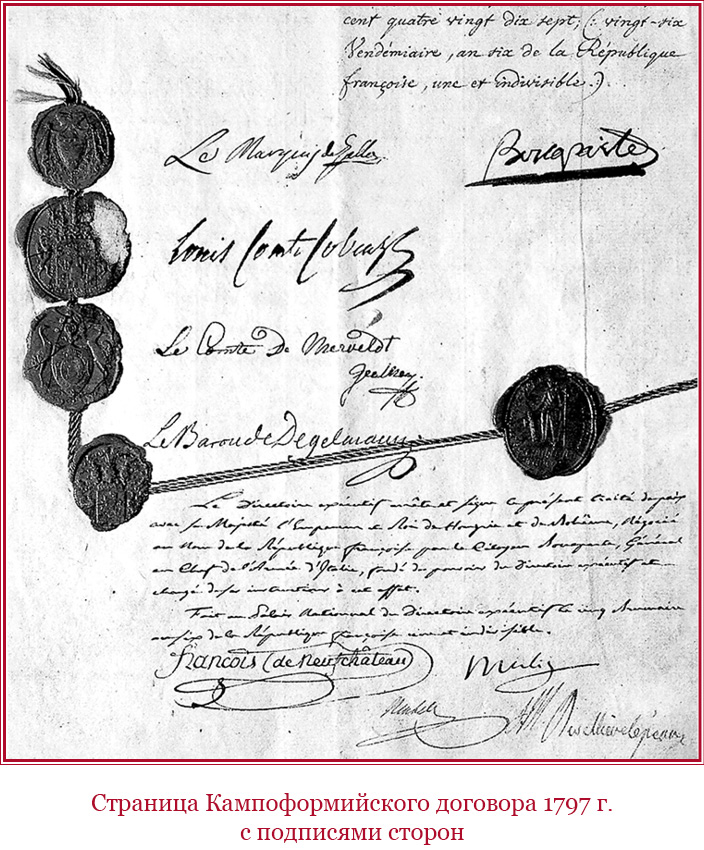 cent quatre vingt dix sept, (: vingt-six
Vendémiaire, an six de la République
françoise, une et indivisible.:)
Le Marquis de Gallo
Bonaparte
Louis Comte Cobenzl
Le Comte De Merveldt
Le Baron de Degelmann
Le Directoire exécutif arrête et signe le présent traité de paix
avec sa Majesté l'Empereur et Roi de Hongrie et de Bohême, Négocié
au Nom de la République françoise par le Citoyen Bonaparte, Général
en Chef de l'Armée d'Italie, fondé de pouvoirs du Directoire exécutif et
chargé de ses instructions à cet effet.
Fait au Palais National du Directoire exécutif le cinq Brumaire
an six de la République françoise une et indivisible.
François (de Neufchâteau)
Merlin
Страница Кампоформийского договора 1797 г.
с подписями сторон